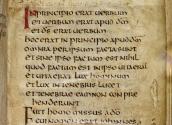 IN PRINCIPIO ERAT UERBUM
ET UERBUM ERAT APUD DM̄
ET DS̄ ERAT UERBUM
HOC ERAT IN PRINCIPIO APUD DM̄
OMNIA PER IPSUM FACTA SUNT
ET SINE IPSO FACTUM EST NIHIL
QUOD FACTUM EST IN IPSO UITA EST
ET UITA ERAT LUX HOMINUM
ET LUX IN TENEBRIS LUCET
ET TENEBRAE EAM NON CONPRE
HENDERUNT
FUIT HOMO MISSUS A DŌ
CUI NOMEN ERAT